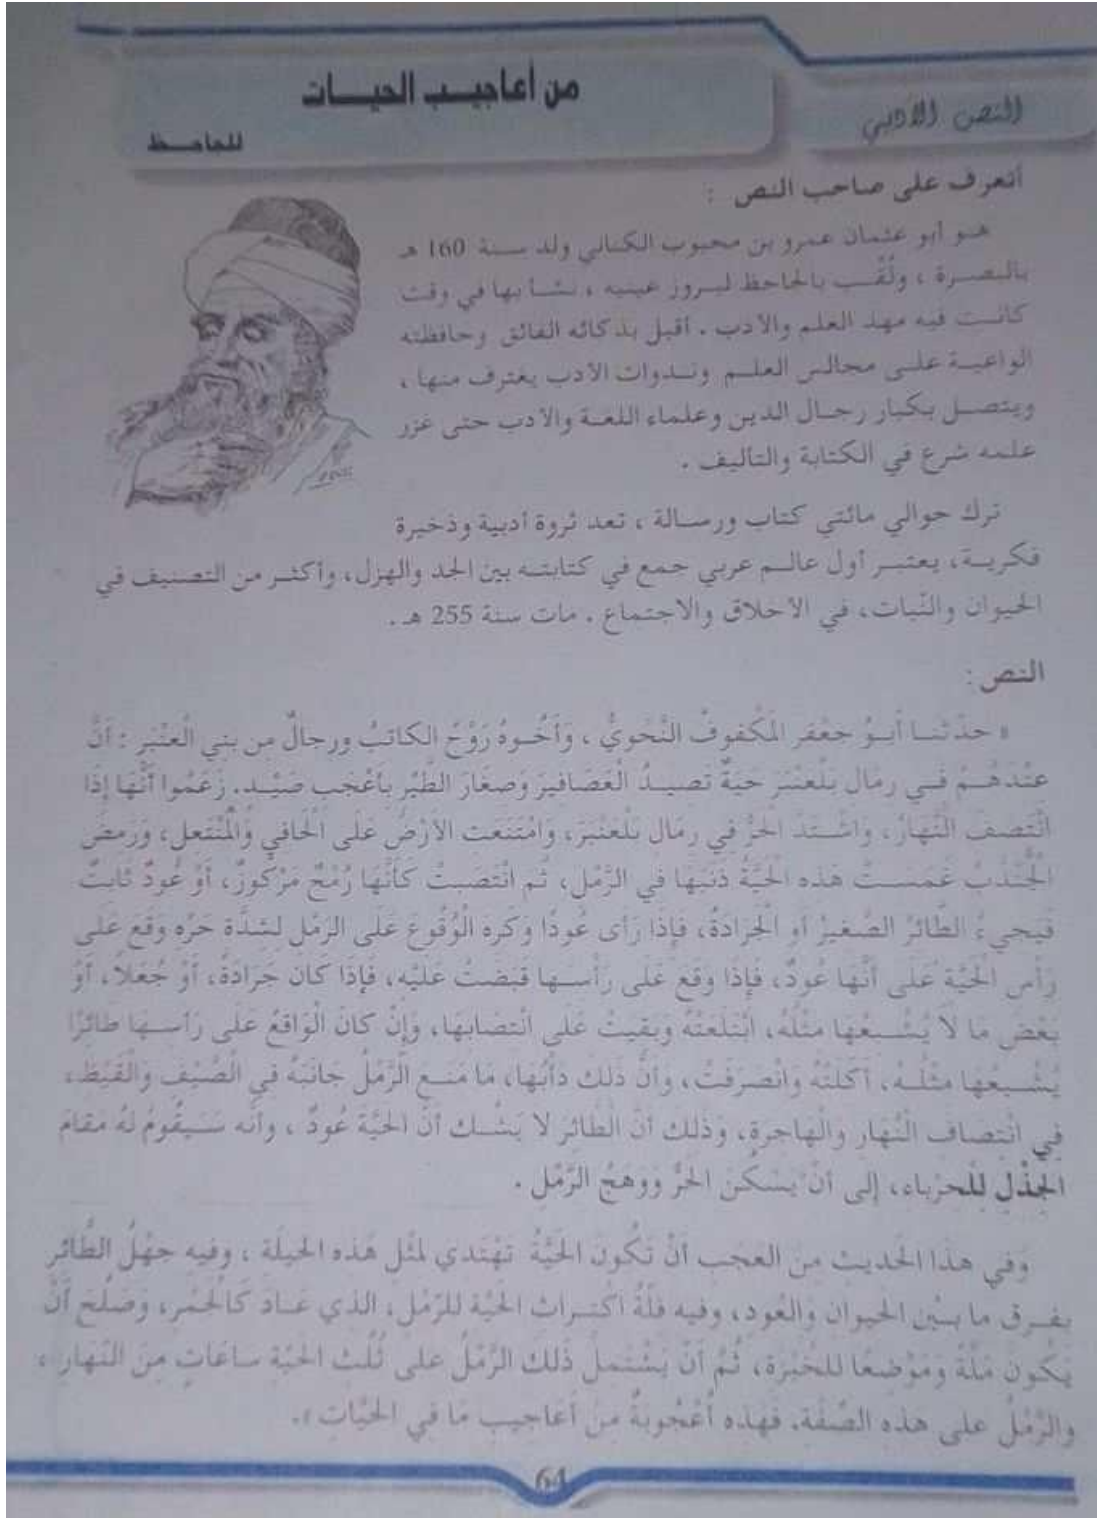 النص الأدبي
من أعاجيب الحيات
للجاحظ
أتعرف على صاحب النص :
هو أبو عثمان عمرو بن محبوب الكناني ولد سنة 160 هـ
بالبصرة ، ولُقّب بالجاحظ لبروز عينيه ، نشأ بها في وقت
كانت فيه مهد العلم والأدب . أقبل بذكائه الفائق وحافظته
الواعية على مجالس العلم وندوات الأدب يغترف منها ،
ويتصل بكبار رجال الدين وعلماء اللغة والأدب حتى غزر
علمه شرع في الكتابة والتأليف .
ترك حوالي مائتي كتاب ورسالة ، تعد ثروة أدبية وذخيرة
فكرية، يعتبر أول عالم عربي جمع في كتابته بين الجد والهزل، وأكثر من التصنيف في
الحيوان والنّبات، في الأخلاق والاجتماع . مات سنة 255 هـ .
النص :
« حدّثنا أَبُو جَعْفَر المَكْفوفُ النَّحَويُّ ، وَأَخُوهُ رَوْحُ الكاتبُ ورجالٌ مِن بني الْعَنْبَر : أنَّ
عنْدَهُمْ فِي رمَال بَلْعَنْبَرَ حَيةً تَصيدُ الْعَصَافيرَ وَصغَارَ الطَّيْر بأَعْجَب صَيْد. زَعَمُوا أَنَّهَا إذَا
انْتَصَفَ النَّهَارُ، وَاشْتَدَّ الحَرُّ في رمَال بَلْعَنْبَرَ، وَامْتَنَعَت الأَرْضُ عَلَى الْحَافي وَالْمُنْتَعل، وَرَمضَ
الْجُنْدَبُ غَمَسَتْ هَذه الْحَيَّةُ ذَنَبَهَا في الرَّمْل، ثُم انْتَصَبَتْ كَأَنَّهَا رُمْحٌ مَرْكُوزٌ، أَوْ عُودٌ ثَابتٌ
فَيَجيءُ الطَّائرُ الصَّغيرُ أَو الْجَرَادَةُ، فَإذَا رَأى عُودًا وَكَره الْوُقُوعَ عَلَى الرَّمْل لشدَّة حَرّه وَقَعَ عَلَى
رَأْس الْحَيَّة عَلَى أَنَّهَا عُودٌ، فَإذَا وَقَعَ عَلَى رَأْسهَا قَبَضَتْ عَلَيْه، فَإذَا كَانَ جَرَادَةً، أَوْ جُعَلاً، أَوْ
بَعْضَ مَا لاَ يُشْبعُهَا مثْلُهُ، ابْتَلَعَتْهُ وَبَقيَتْ عَلَى انْتصَابهَا، وَإنْ كَانَ الْوَاقعُ عَلَى رَأسهَا طَائرًا
يُشْبعُهَا مثْلُهُ، أَكَلَتْهُ وَانْصَرَفَتْ، وَأنَّ ذَلكَ دَأْبُهَا، مَا مَنَعَ الرَّمْلُ جَانبَهُ في الصَّيْف وَالْقَيْظ،
فِي انْتصَاف النَّهَار وَالْهَاجرة، وَذَلكَ أنَّ الطَّائرَ لاَ يَشُكُّ أنَّ الْحَيَّةَ عُودٌ ، وأنه سَيَقُومُ لَهُ مَقَامَ
الجِذْلِ لِلْحرْباء، إلى أنْ يَسْكُنَ الحَرُّ وَوَهَجُ الرَّمْل .
وَفي هذَا الحَديث منَ العَجَب أنْ تَكُونَ الحَيَّةُ تَهْتَدي لمثْل هَذه الحيلَة ، وفيه جهْلُ الطَّائر
بفرق ما بيْن الحيوان وَالعُود، وفيه قلَّةُ اكْتراث الحَيَّة للرّمْل، الذي عَادَ كَالْجَمْر، وَصَلُحَ أنْ
يَكُونَ مَلَّةً وَمَوْضعًا للخُبْزَة، ثُمَّ أنْ يَشْتَملَ ذَلكَ الرَّمْلُ على ثُلُث الحَيَّة ساعَاتٍ منَ النَّهَار ،
والرَّمْلُ على هذه الصّفَة. فهَذه أُعْجُوبَةٌ منْ أعاجيب مَا في الحَيَّات ».
64